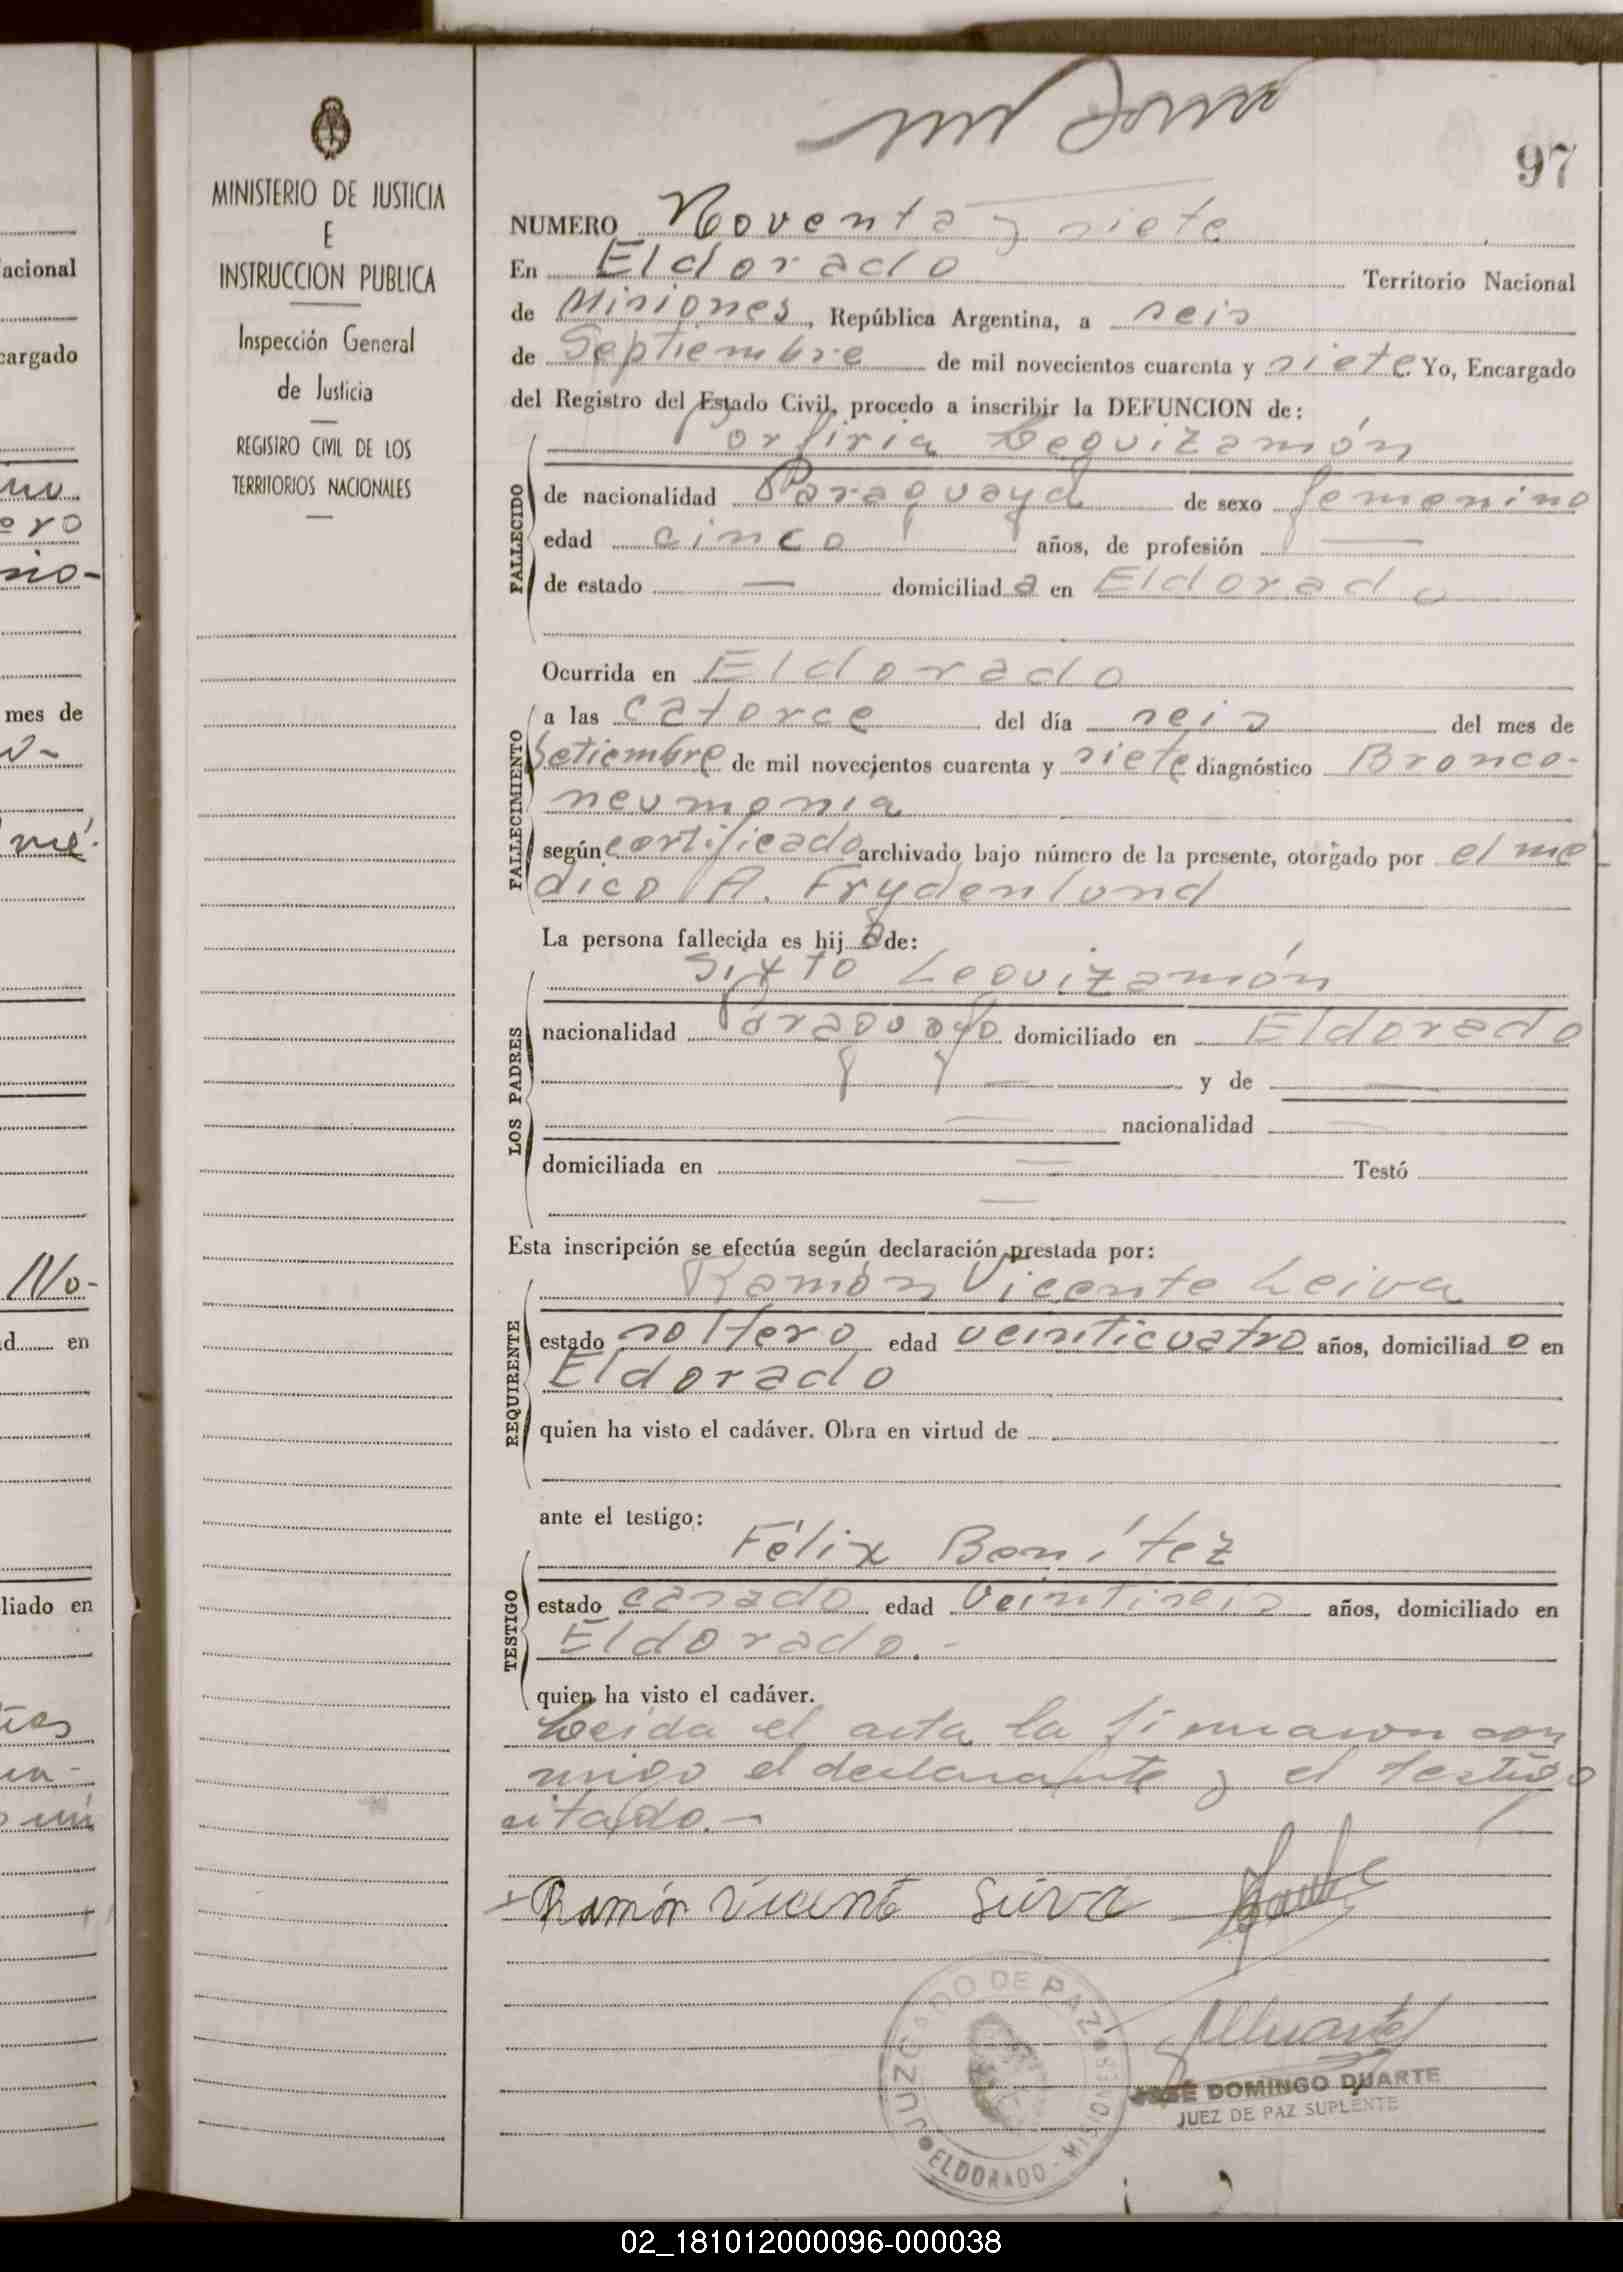 97
MINISTERIO DE JUSTICIA
E
INSTRUCCION PUBLICA
Inspección General
de Justicia
REGISTRO CIVIL DE LOS
TERRITORIOS NACIONALES
NUMERO Noventa y siete
En Eldorado Territorio Nacional
de Misiones, República Argentina, a seis
de Septiembre de mil novecientos cuarenta y siete Yo, Encargado
del Registro del Estado Civil, procedo a inscribir la DEFUNCION de:
Porfiria Leguizamón
FALLECIDO
de nacionalidad Paraguaya de sexo femenino
edad cinco años, de profesión —
de estado — domiciliada en Eldorado
Ocurrida en Eldorado
FALLECIMIENTO
a las catorce del día seis del mes de
Setiembre de mil novecientos cuarenta y siete diagnóstico Bronco-
neumonia
según certificado archivado bajo número de la presente, otorgado por el me
dico A. Frydenlund
La persona fallecida es hija de:
LOS PADRES
Sixto Leguizamón
nacionalidad Paraguayo domiciliado en Eldorado
— y de —
— nacionalidad —
domiciliada en — Testó
—
Esta inscripción se efectúa según declaración prestada por:
REQUIRENTE
Ramón Vicente Leiva
estado soltero edad veinticuatro años, domiciliado en
Eldorado
quien ha visto el cadáver. Obra en virtud de
ante el testigo:
TESTIGO
Félix Benítez
estado casado edad veintiseis años, domiciliado en
Eldorado.-
quien ha visto el cadáver.
Leida el acta la firmaron con
migo el declarante y el testigo
citado.-
Ramón Vicente
JUZGADO DE PAZ
ELDORADO - MISIONES
JOSÉ DOMINGO DUARTE
JUEZ DE PAZ SUPLENTE
acional
cargado
mes de
No-
d en
liado en
02_181012000096-000038